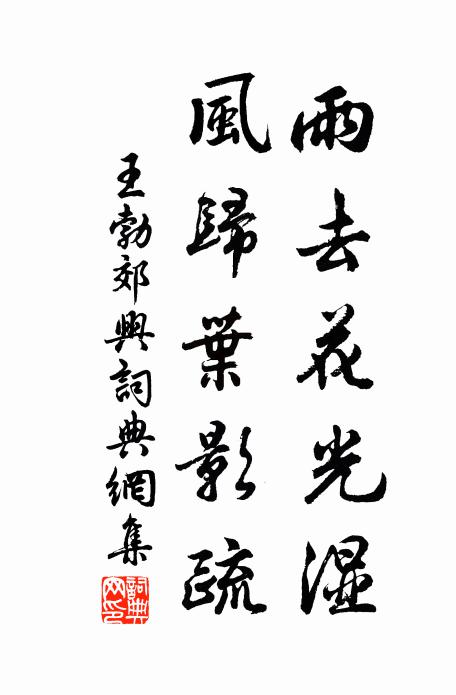 雨去花光湿
風歸葉影疏
王勃郊興詞典網集
詞典網印